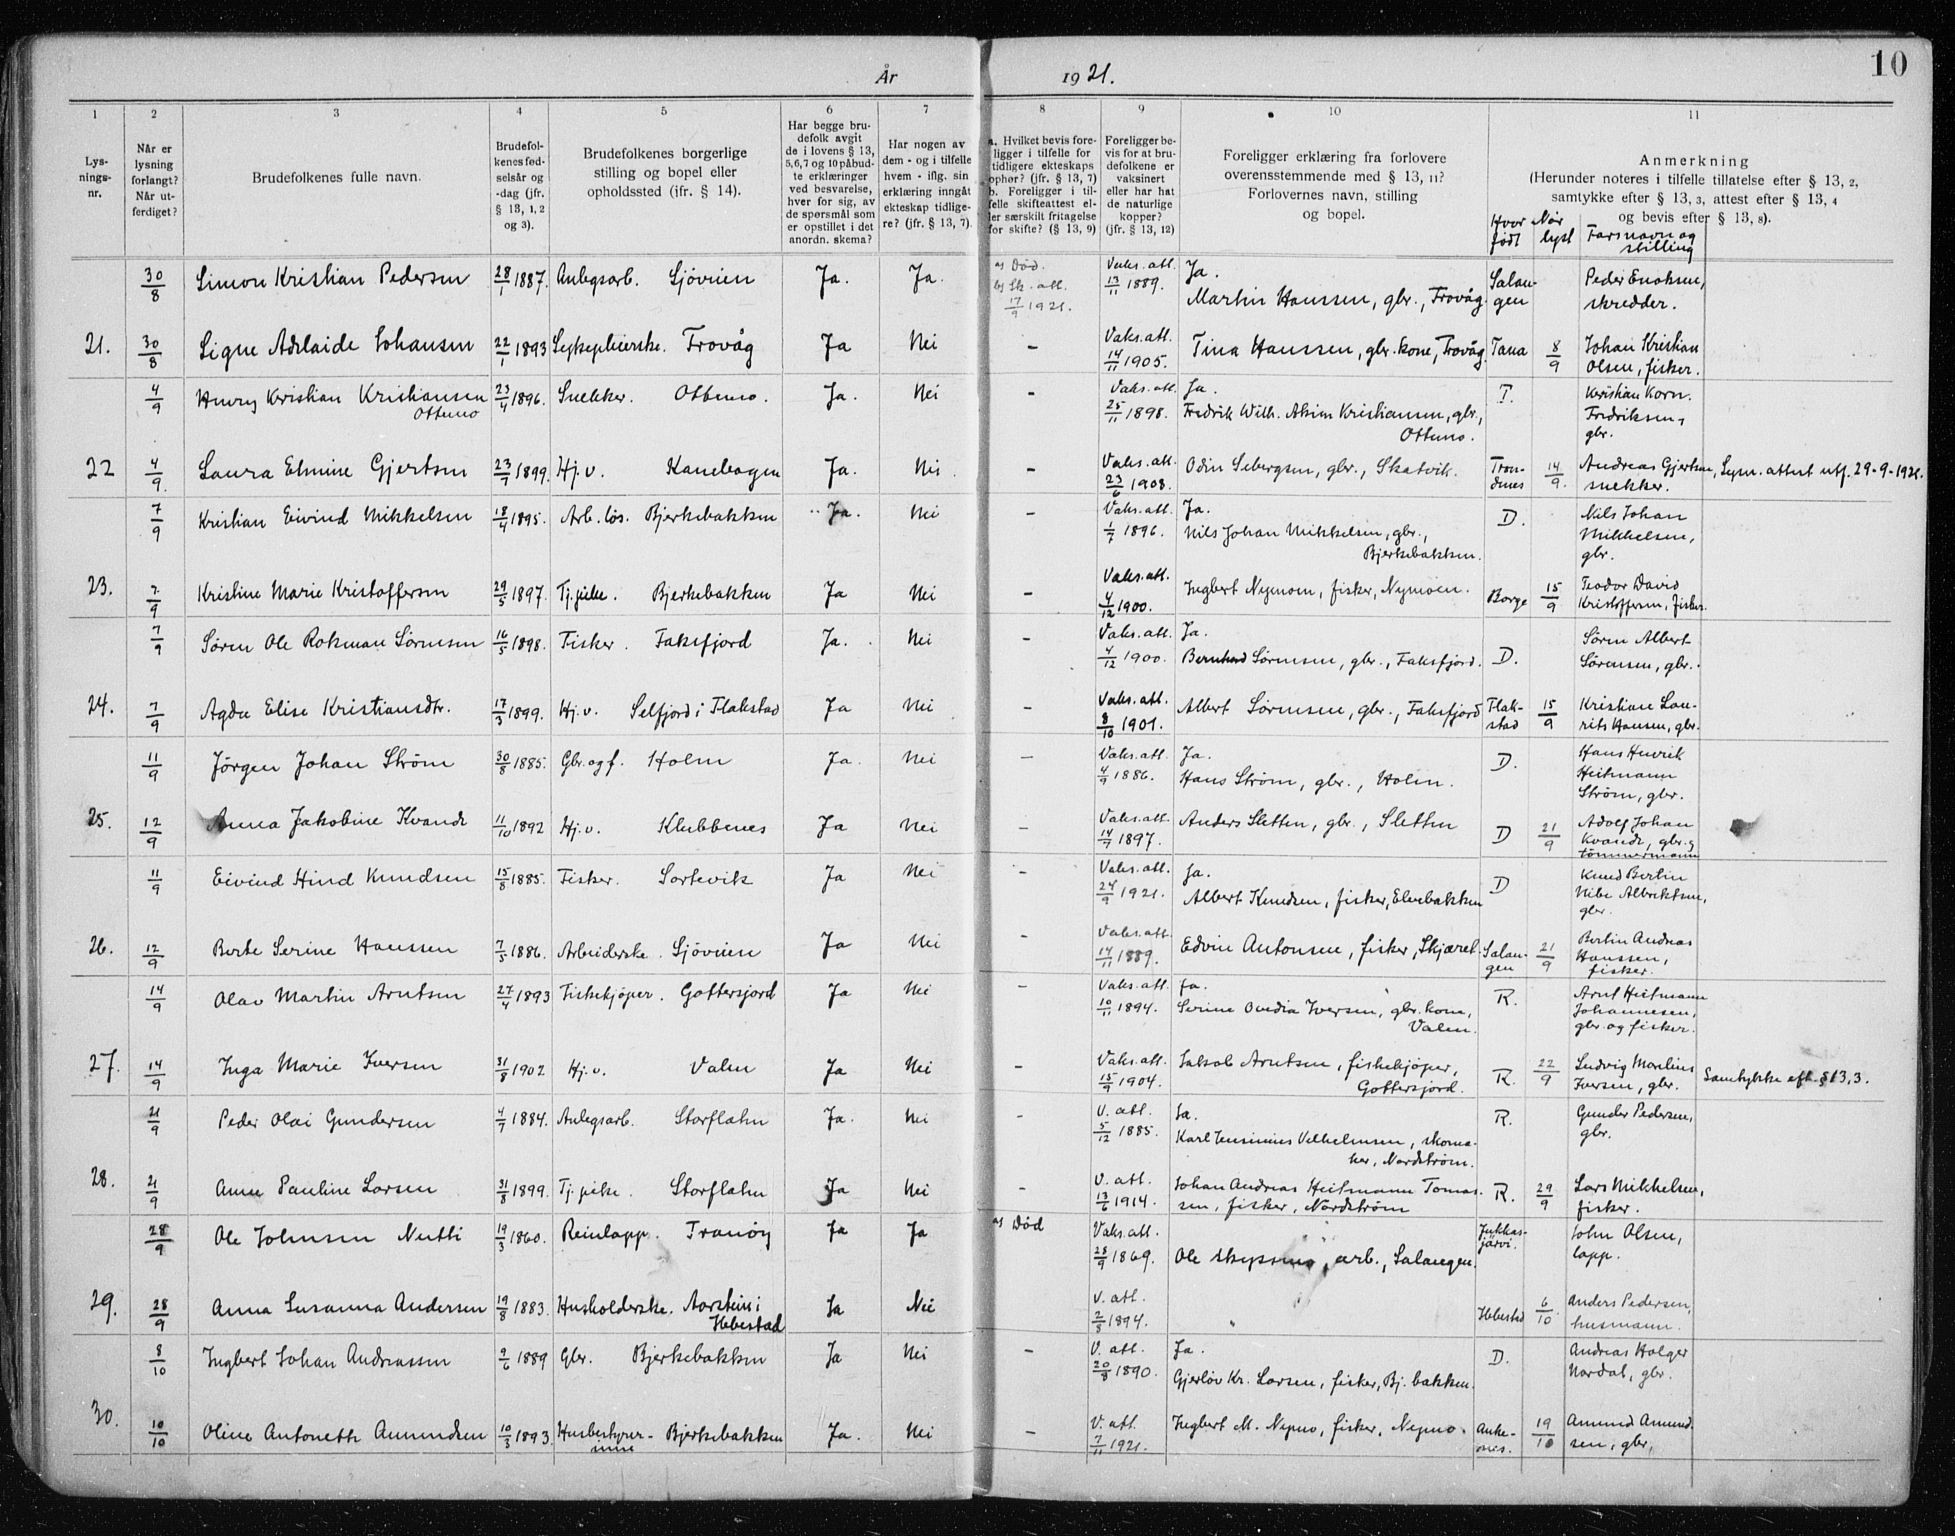 År 1921.
10
1 2 3 4 5 6 7 8 9 10 11
Lys-
nings-
nr.
Når er
lysning
forlangt?
Når ut-
ferdiget?
Brudefolkenes fulle navn.
Brudefol-
kenes fød-
selsår og
-dag (jfr.
§ 13, 1, 2
og 3).
Brudefolkenes borgerlige
stilling og bopel eller
opholdssted (jfr. § 14).
Har begge bru-
defolk avgit
de i lovens § 13,
5,6,7 og 10 påbud-
te erklæringer
ved besvarelse,
hver for sig, av
de spørsmål som
er opstillet i det
anordn. skema?
Har nogen av
dem - og i tilfelle
hvem - iflg. sin
erklæring inngåt
ekteskap tidlige-
re? (jfr. § 13, 7).
a. Hvilket bevis fore-
ligger i tilfelle for
tidligere ekteskaps
ophør? (jfr. § 13, 7)
b. Foreligger i til-
felle skifteattest el-
ler særskilt fritagelse
for skifte? (§ 13, 9)
Foreligger be-
vis for at bru-
defolkene er
vaksinert
eller har hat
de naturlige
kopper?
(jfr. § 13, 12)
Foreligger erklæring fra forlovere
overensstemmende med § 13, 11?
Forlovernes navn, stilling
og bopel.
Anmerkning
(Herunder noteres i tilfelle tillatelse efter § 13, 2,
samtykke efter § 13, 3, attest efter § 13, 4
og bevis efter § 13, 8).
Hvor født
Når lyst
Farsnavn og
stilling
30/8 Simon Kristian Pedersen 28/1 1887. Anlegsarb. Sjöveien Ja. Ja. a) Død. b) Sk. att. 17/9 1921. Vaks. att. 13/11 1889. Ja. Martin Hanssen, gbr., Frovåg. Salan-gen Peder Enoksen, skredder.
21. 30/8 Signe Adelaide Johansen 22/1 1893 Sykepleierske. Frovåg Ja Nei - Vaks. att. 14/11 1905. Tina Hanssen, gbr. kone, Frovåg. Tana 8/9 Johan Kristian Olsen, fisker.
4/9 Henry Kristian Kristiansen Ottemo 23/4 1896. Snekker. Ottemo. Ja. Nei - Vaks. att. 25/11 1898. Ja. Fredrik Wilh. Akim Kristiansen, gbr., Ottemo. T. Kristian Korn. Fredriksen, gbr.
22 4/9. Laura Elmine Gjertsen 23/7 1899. Hj. v. Kanebogen Ja. Nei. - Vaks. att. 23/6 1908. Odin Sebergsen, gbr., Skatvik. Tron-denes 14/9. Andreas Gjertsen, snekker. Lysn. attest utf. 29-9-1921.
7/9 Kristian Eivind Mikkelsen 18/4 1895. Arb. løs. Bjerkebakken Ja. Nei - Vaks. att. 1/7 1896. Ja. Nils Johan Mikkelsen, gbr., Bjerkebakken. D. Nils Johan Mikkelsen, gbr.
23. 7/9 Kristine Marie Kristoffersen 29/5 1897. Tj. pike. Bjerkebakken Ja Nei - Vaks. att. 4/12 1900. Ingbert Nymoen, fisker, Nymoen. Borge 15/9 Teodor David Kristoffersen, fisker.
7/9 Søren Ole Rokman Sørensen 16/5 1898. Fisker. Faksfjord Ja. Nei - Vaks. att. 4/12 1900. Ja. Bernhard Sørensen, gbr., Faksfjord. D. Søren Albert Sørensen, gbr.
24. 7/9 Agda Elise Kristiansdtr. 17/3 1899. Hj. v. Selfjord i Flakstad Ja Nei - Vaks. att. 8/10 1901. Albert Sørensen, gbr., Faksfjord Flak-stad 15/9 Kristian Lau-rits Hansen, gbr.
11/9 Jørgen Johan Strøm 30/8 1885. Gbr. og f. Holm Ja. Nei - Vaks. att. 4/9 1886. Ja. Hans Strøm, gbr., Holm. D. Hans Henrik Heitmann Strøm, gbr.
25. 12/9 Anna Jakobine Kvande 11/10 1892 Hj. v. Klubbenes Ja Nei - Vaks. att. 14/7 1897. Anders Sletten, gbr., Sletten D 21/9 Adolf Johan Kvande, gbr. og tømmermann
11/9 Eivind Hind Knudsen 15/8 1885. Fisker. Sortevik Ja Nei - Vaks. att. 24/9 1921. Ja. Albert Knudsen, fisker, Elvebakken D Knud Bertin Nibe Albriktsen, gbr.
26. 12/9 Berte Serine Hanssen 7/5 1886. Arbeiderske. Sjöveien Ja Nei - Vaks. att. 14/11 1889. Edvin Antonsen, fisker, Skjæret. Salan-gen 21/9 Bertin Andreas Hanssen, fisker.
14/9 Olav Martin Arntsen 27/4 1893 Fiskekjøper. Gottersjord Ja Nei - Vaks. att. 10/11 1894. Ja. Serine Ovedia Iversen, gbr. kone, Valen. R. Arnt Heitmann Johannesen, gbr. og fisker.
27. 14/9 Inga Marie Iversen 31/8 1902 Hj. v. Valen Ja Nei - Vaks. att. 15/9 1904. Jakob Arntsen, fiskekjøper, Gottersjord. R. 22/9 Ludvig Monlius Iversen, gbr. Samtykke eft. § 13, 3.
21/9 Peder Olai Gundersen 4/7 1884. Anlegsarb. Storflaten Ja. Nei - V. att. 5/12 1885. Ja. Karl Jensinius Vilhelmsen, skoma-ker, Nordstrøm. R. Gunder Pedersen, gbr.
28. 21/9 Anne Pauline Larsen 31/8 1899. Tj. pike. Storflaten Ja Nei - V. att. 13/6 1914. Johan Andreas Heitmann Tomas-sen, fisker, Nordstrøm R. 29/9 Lars Mikkelsen, fisker.
28/9 Ole Johnsen Nutti 19/3 1860. Reinlapp. Tranöy Ja Ja a) Død Vaks. att. 28/9 1869. Ole Skysmo, arb., Salangen. Jukkas-järvi. John Olsen, lapp.
29. 28/9 Anna Susanna Andersen 19/8 1883. Husholderske. Aarstein i Ibbestad Ja Nei V. att. 2/8 1894. Ibbestad 6/10 Anders Pedersen, husmann.
8/10 Ingbert Johan Andreassen 9/6 1889 Gbr. Bjerkebakken Ja Nei - V. att. 20/8 1890. Ja. Gjerløv Kr. Larsen, fisker, Bj. bakken. D. Andreas Holger Nordal, gbr.
30. 10/10 Oline Antonette Amundsen 10/3 1893. Husbestyrer-inne Bjerkebakken Ja. Nei - V. att. 7/11 1921. Ingbert M. Nymo, fisker, Nymo. Anke-nes. 19/10 Amund Amund-sen, gbr.